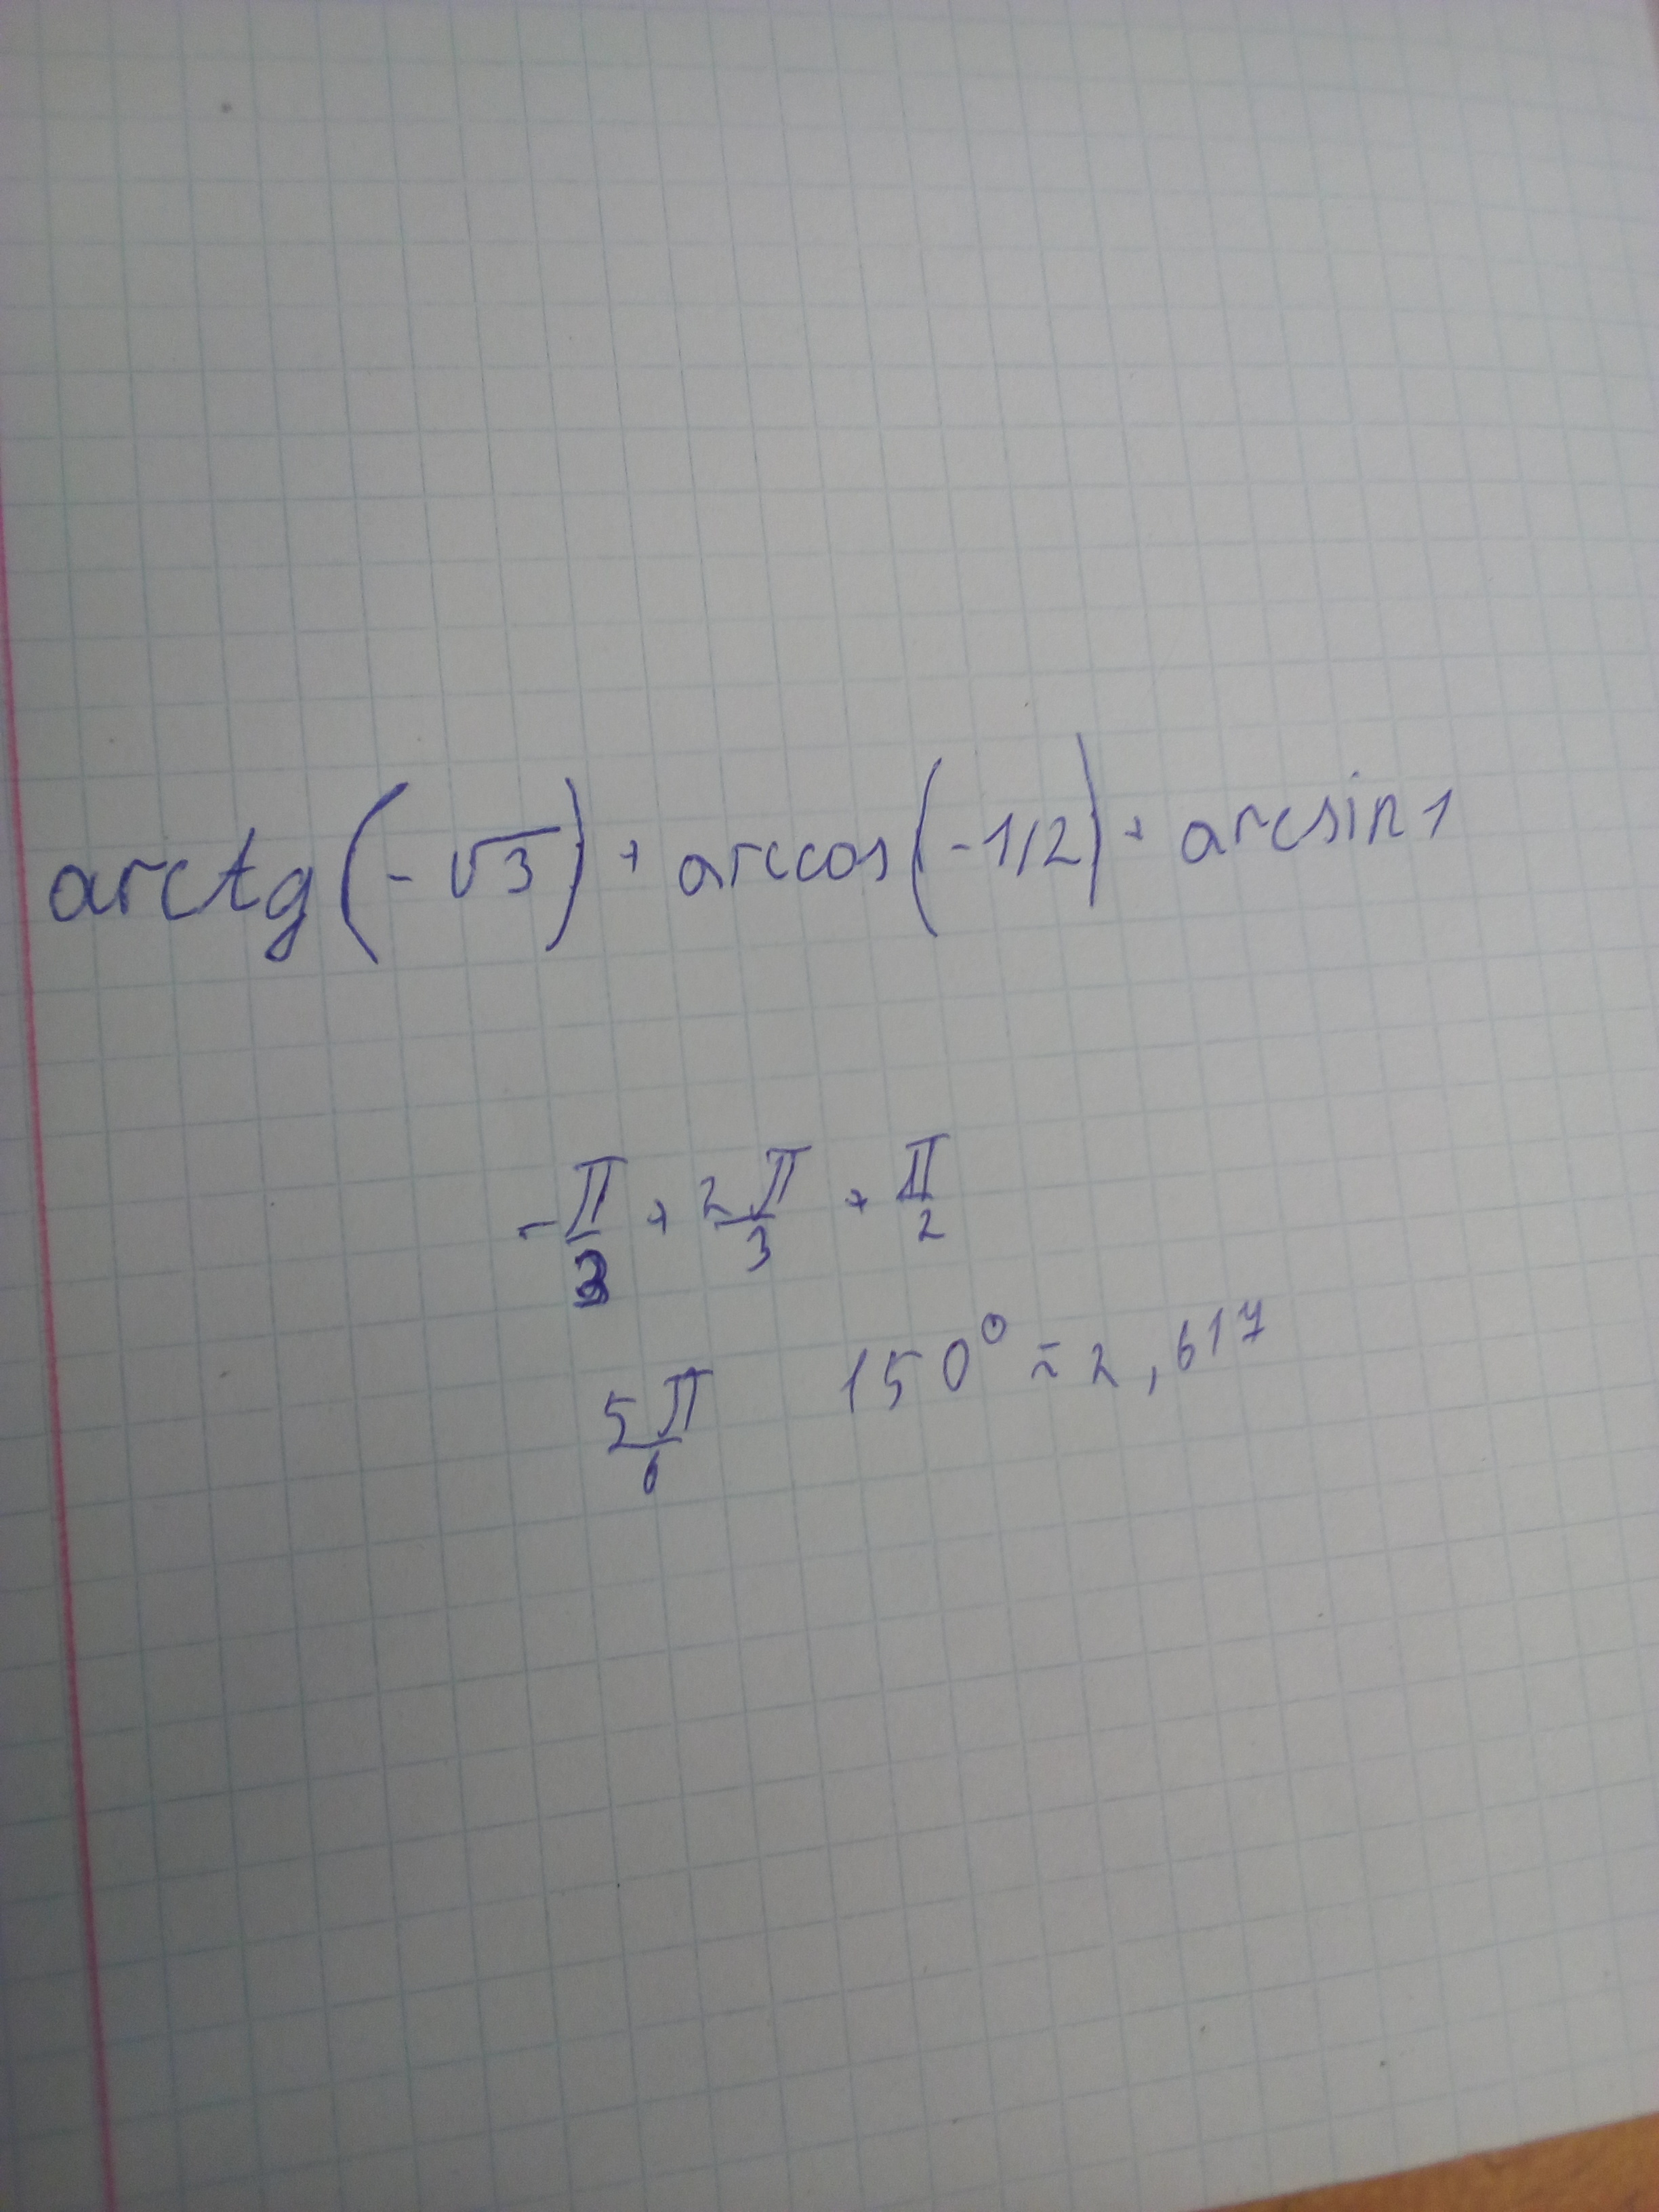 arctg(-√3) + arccos(-1/2) + arcsin1
-π/3 + 2π/3 + π/2
5π/6 150° ≈ 2,617